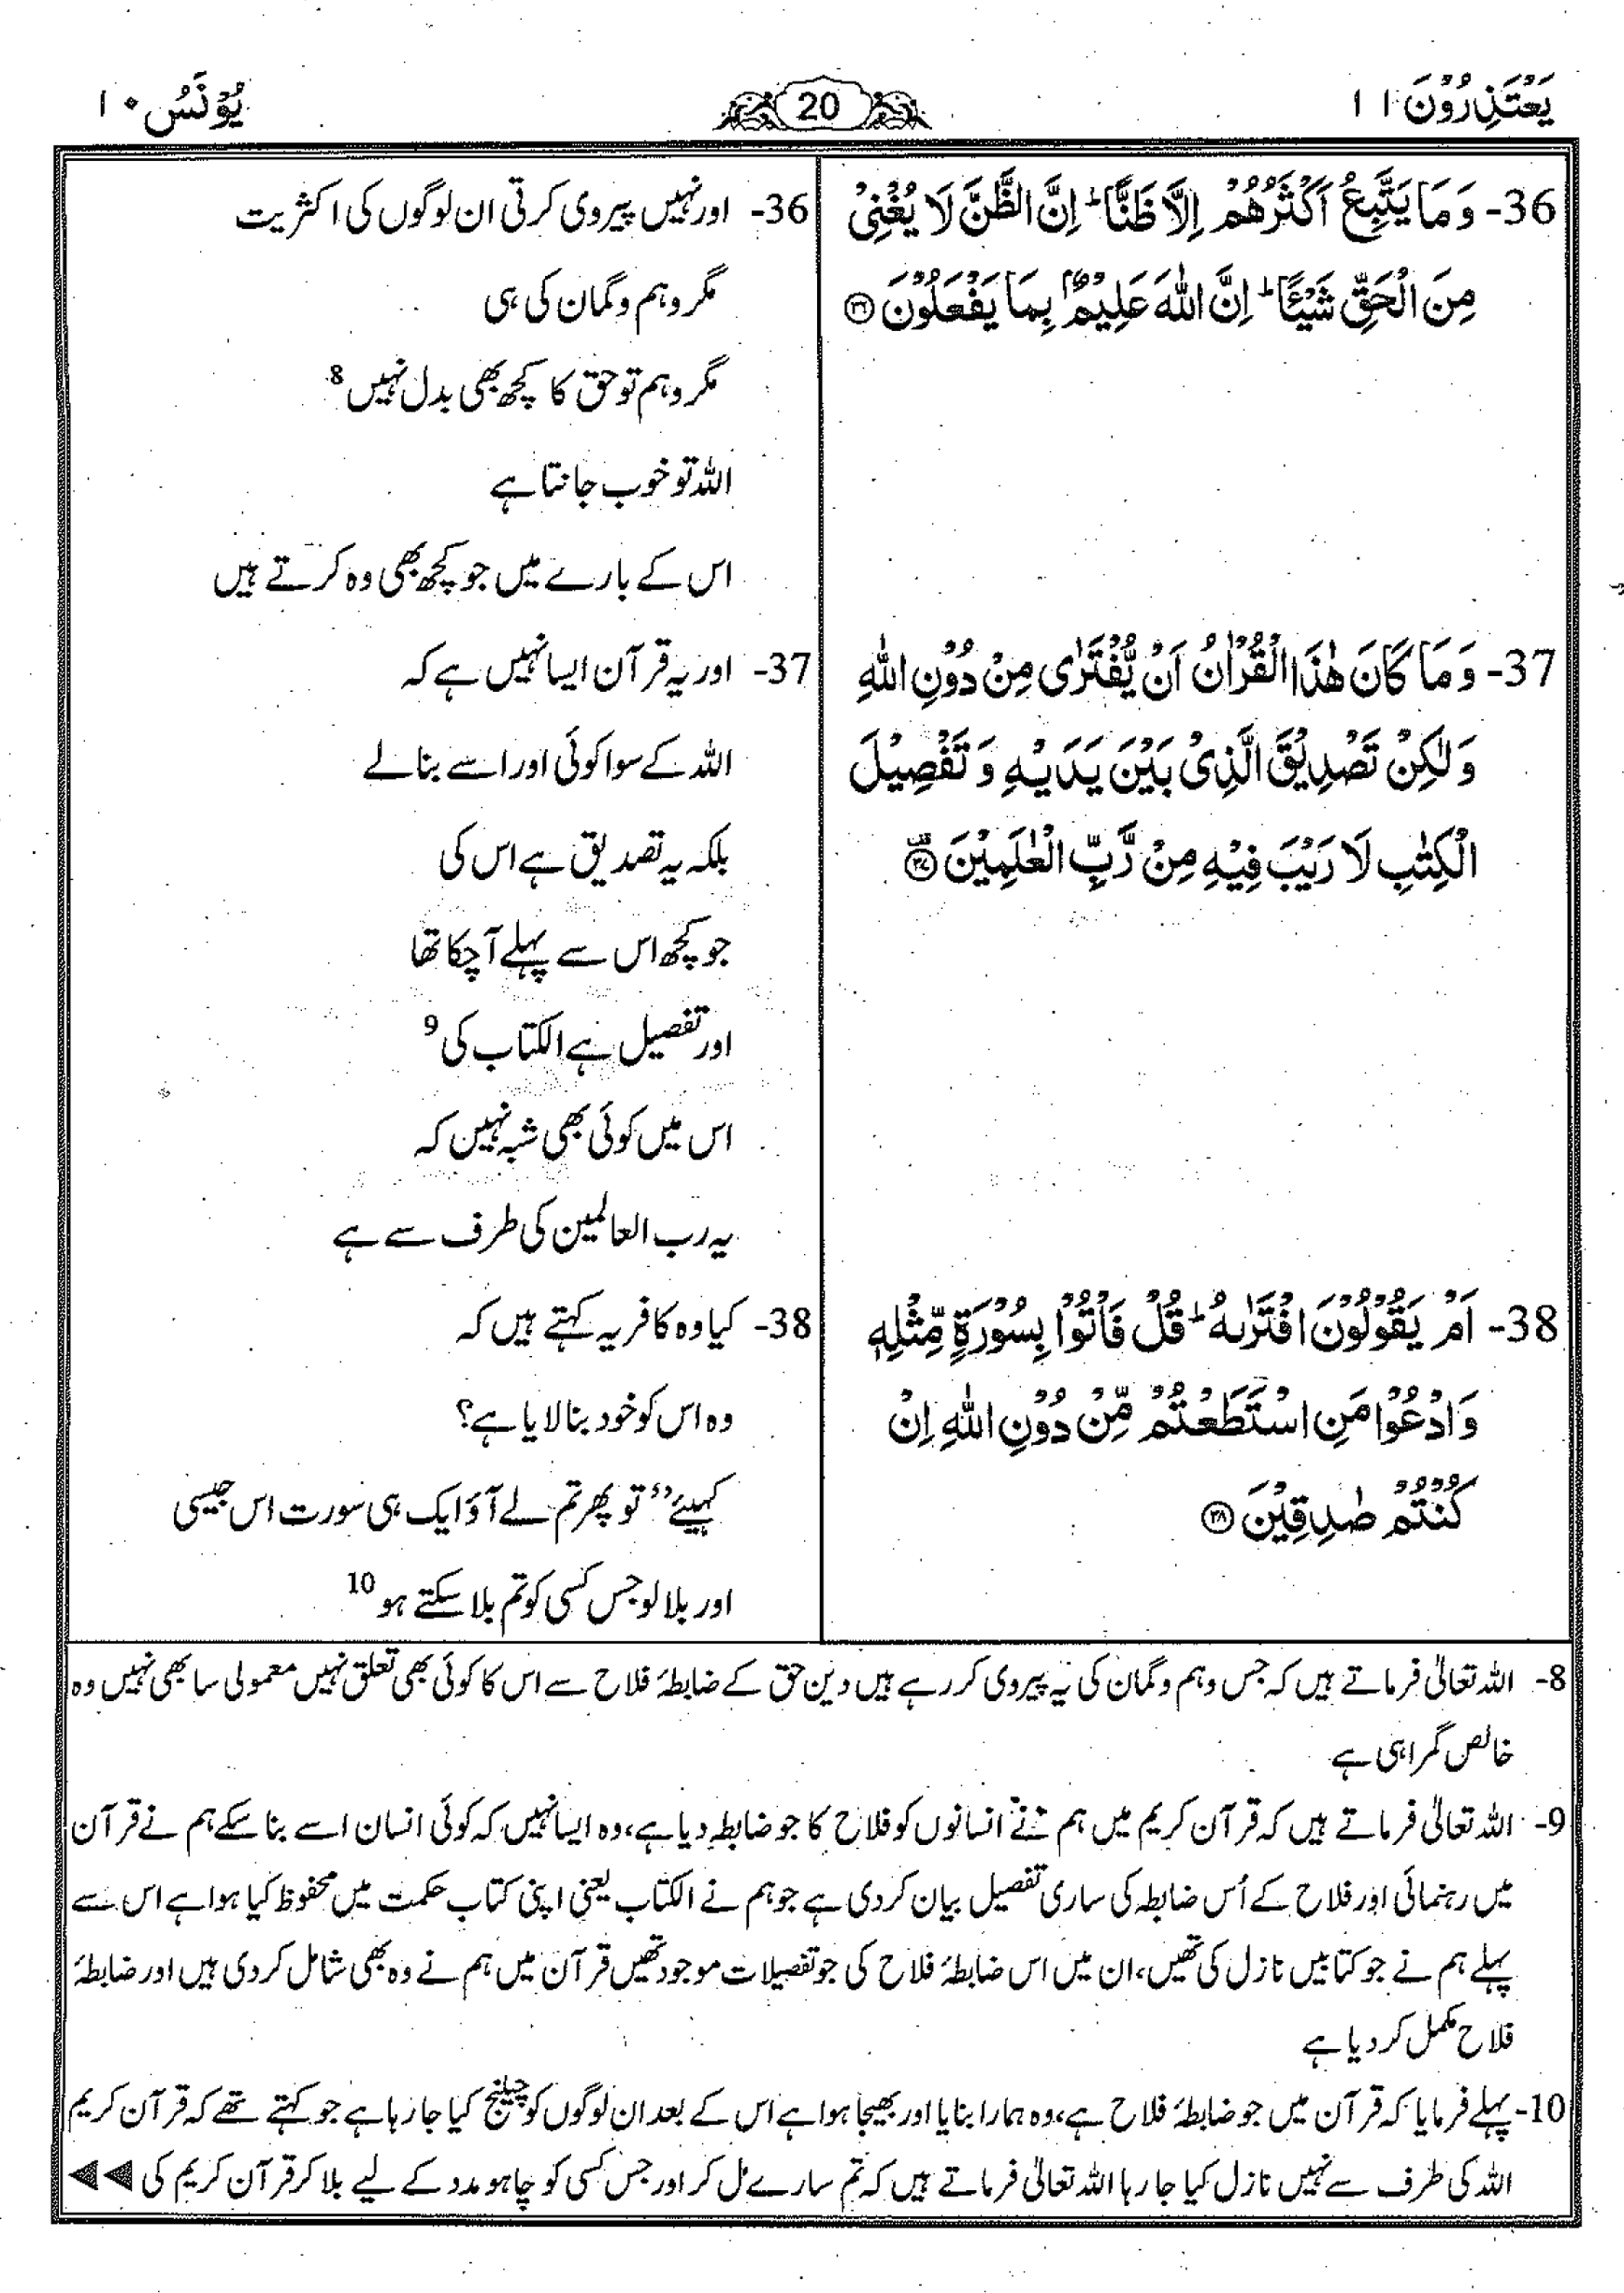 یَعْتَذِرُوْنَ ۱۱
20
یُوْنُس ۱۰
36- وَ مَا یَتَّبِعُ اَكْثَرُهُمْ اِلَّا ظَنًّا ؕ اِنَّ الظَّنَّ لَا یُغْنِیْ
مِنَ الْحَقِّ شَیْـًٔا ؕ اِنَّ اللّٰهَ عَلِیْمٌۢ بِمَا یَفْعَلُوْنَ ۝۳۶
37- وَ مَا كَانَ هٰذَا الْقُرْاٰنُ اَنْ یُّفْتَرٰی مِنْ دُوْنِ اللّٰهِ
وَ لٰكِنْ تَصْدِیْقَ الَّذِیْ بَیْنَ یَدَیْهِ وَ تَفْصِیْلَ
الْكِتٰبِ لَا رَیْبَ فِیْهِ مِنْ رَّبِّ الْعٰلَمِیْنَ ۝۳۷
38- اَمْ یَقُوْلُوْنَ افْتَرٰىهُ ؕ قُلْ فَاْتُوْا بِسُوْرَةٍ مِّثْلِهٖ
وَ ادْعُوْا مَنِ اسْتَطَعْتُمْ مِّنْ دُوْنِ اللّٰهِ اِنْ
كُنْتُمْ صٰدِقِیْنَ ۝۳۸
36- اور نہیں پیروی کرتی ان لوگوں کی اکثریت
مگر وہم و گمان کی ہی
مگر وہم تو حق کا کچھ بھی بدل نہیں 8
اللہ تو خوب جانتا ہے
اس کے بارے میں جو کچھ بھی وہ کرتے ہیں
37- اور یہ قرآن ایسا نہیں ہے کہ
اللہ کے سوا کوئی اور اسے بنا لے
بلکہ یہ تصدیق ہے اس کی
جو کچھ اس سے پہلے آ چکا تھا
اور تفصیل ہے الکتاب کی 9
اس میں کوئی بھی شبہ نہیں کہ
یہ رب العالمین کی طرف سے ہے
38- کیا وہ کافر یہ کہتے ہیں کہ
وہ اس کو خود بنا لایا ہے؟
کہیئے ’’تو پھر تم لے آؤ ایک ہی سورت اس جیسی
اور بلا لو جس کسی کو تم بلا سکتے ہو 10
8- اللہ تعالیٰ فرماتے ہیں کہ جس وہم و گمان کی یہ پیروی کر رہے ہیں دین حق کے ضابطۂ فلاح سے اس کا کوئی بھی تعلق نہیں معمولی سا بھی نہیں وہ
خالص گمراہی ہے
9- اللہ تعالیٰ فرماتے ہیں کہ قرآن کریم میں ہم نے انسانوں کو فلاح کا جو ضابطہ دیا ہے، وہ ایسا نہیں کہ کوئی انسان اسے بنا سکے ہم نے قرآن
میں رہنمائی اور فلاح کے اُس ضابطہ کی ساری تفصیل بیان کر دی ہے جو ہم نے الکتاب یعنی اپنی کتاب حکمت میں محفوظ کیا ہوا ہے اس سے
پہلے ہم نے جو کتابیں نازل کی تھیں، ان میں اس ضابطۂ فلاح کی جو تفصیلات موجود تھیں قرآن میں ہم نے وہ بھی شامل کر دی ہیں اور ضابطۂ
فلاح مکمل کر دیا ہے
10- پہلے فرمایا کہ قرآن میں جو ضابطۂ فلاح ہے، وہ ہمارا بنایا اور بھیجا ہوا ہے اس کے بعد ان لوگوں کو چیلنج کیا جا رہا ہے جو کہتے تھے کہ قرآن کریم
اللہ کی طرف سے نہیں نازل کیا جا رہا اللہ تعالیٰ فرماتے ہیں کہ تم سارے مل کر اور جس کسی کو چاہو مدد کے لیے بلا کر قرآن کریم کی ◄◄